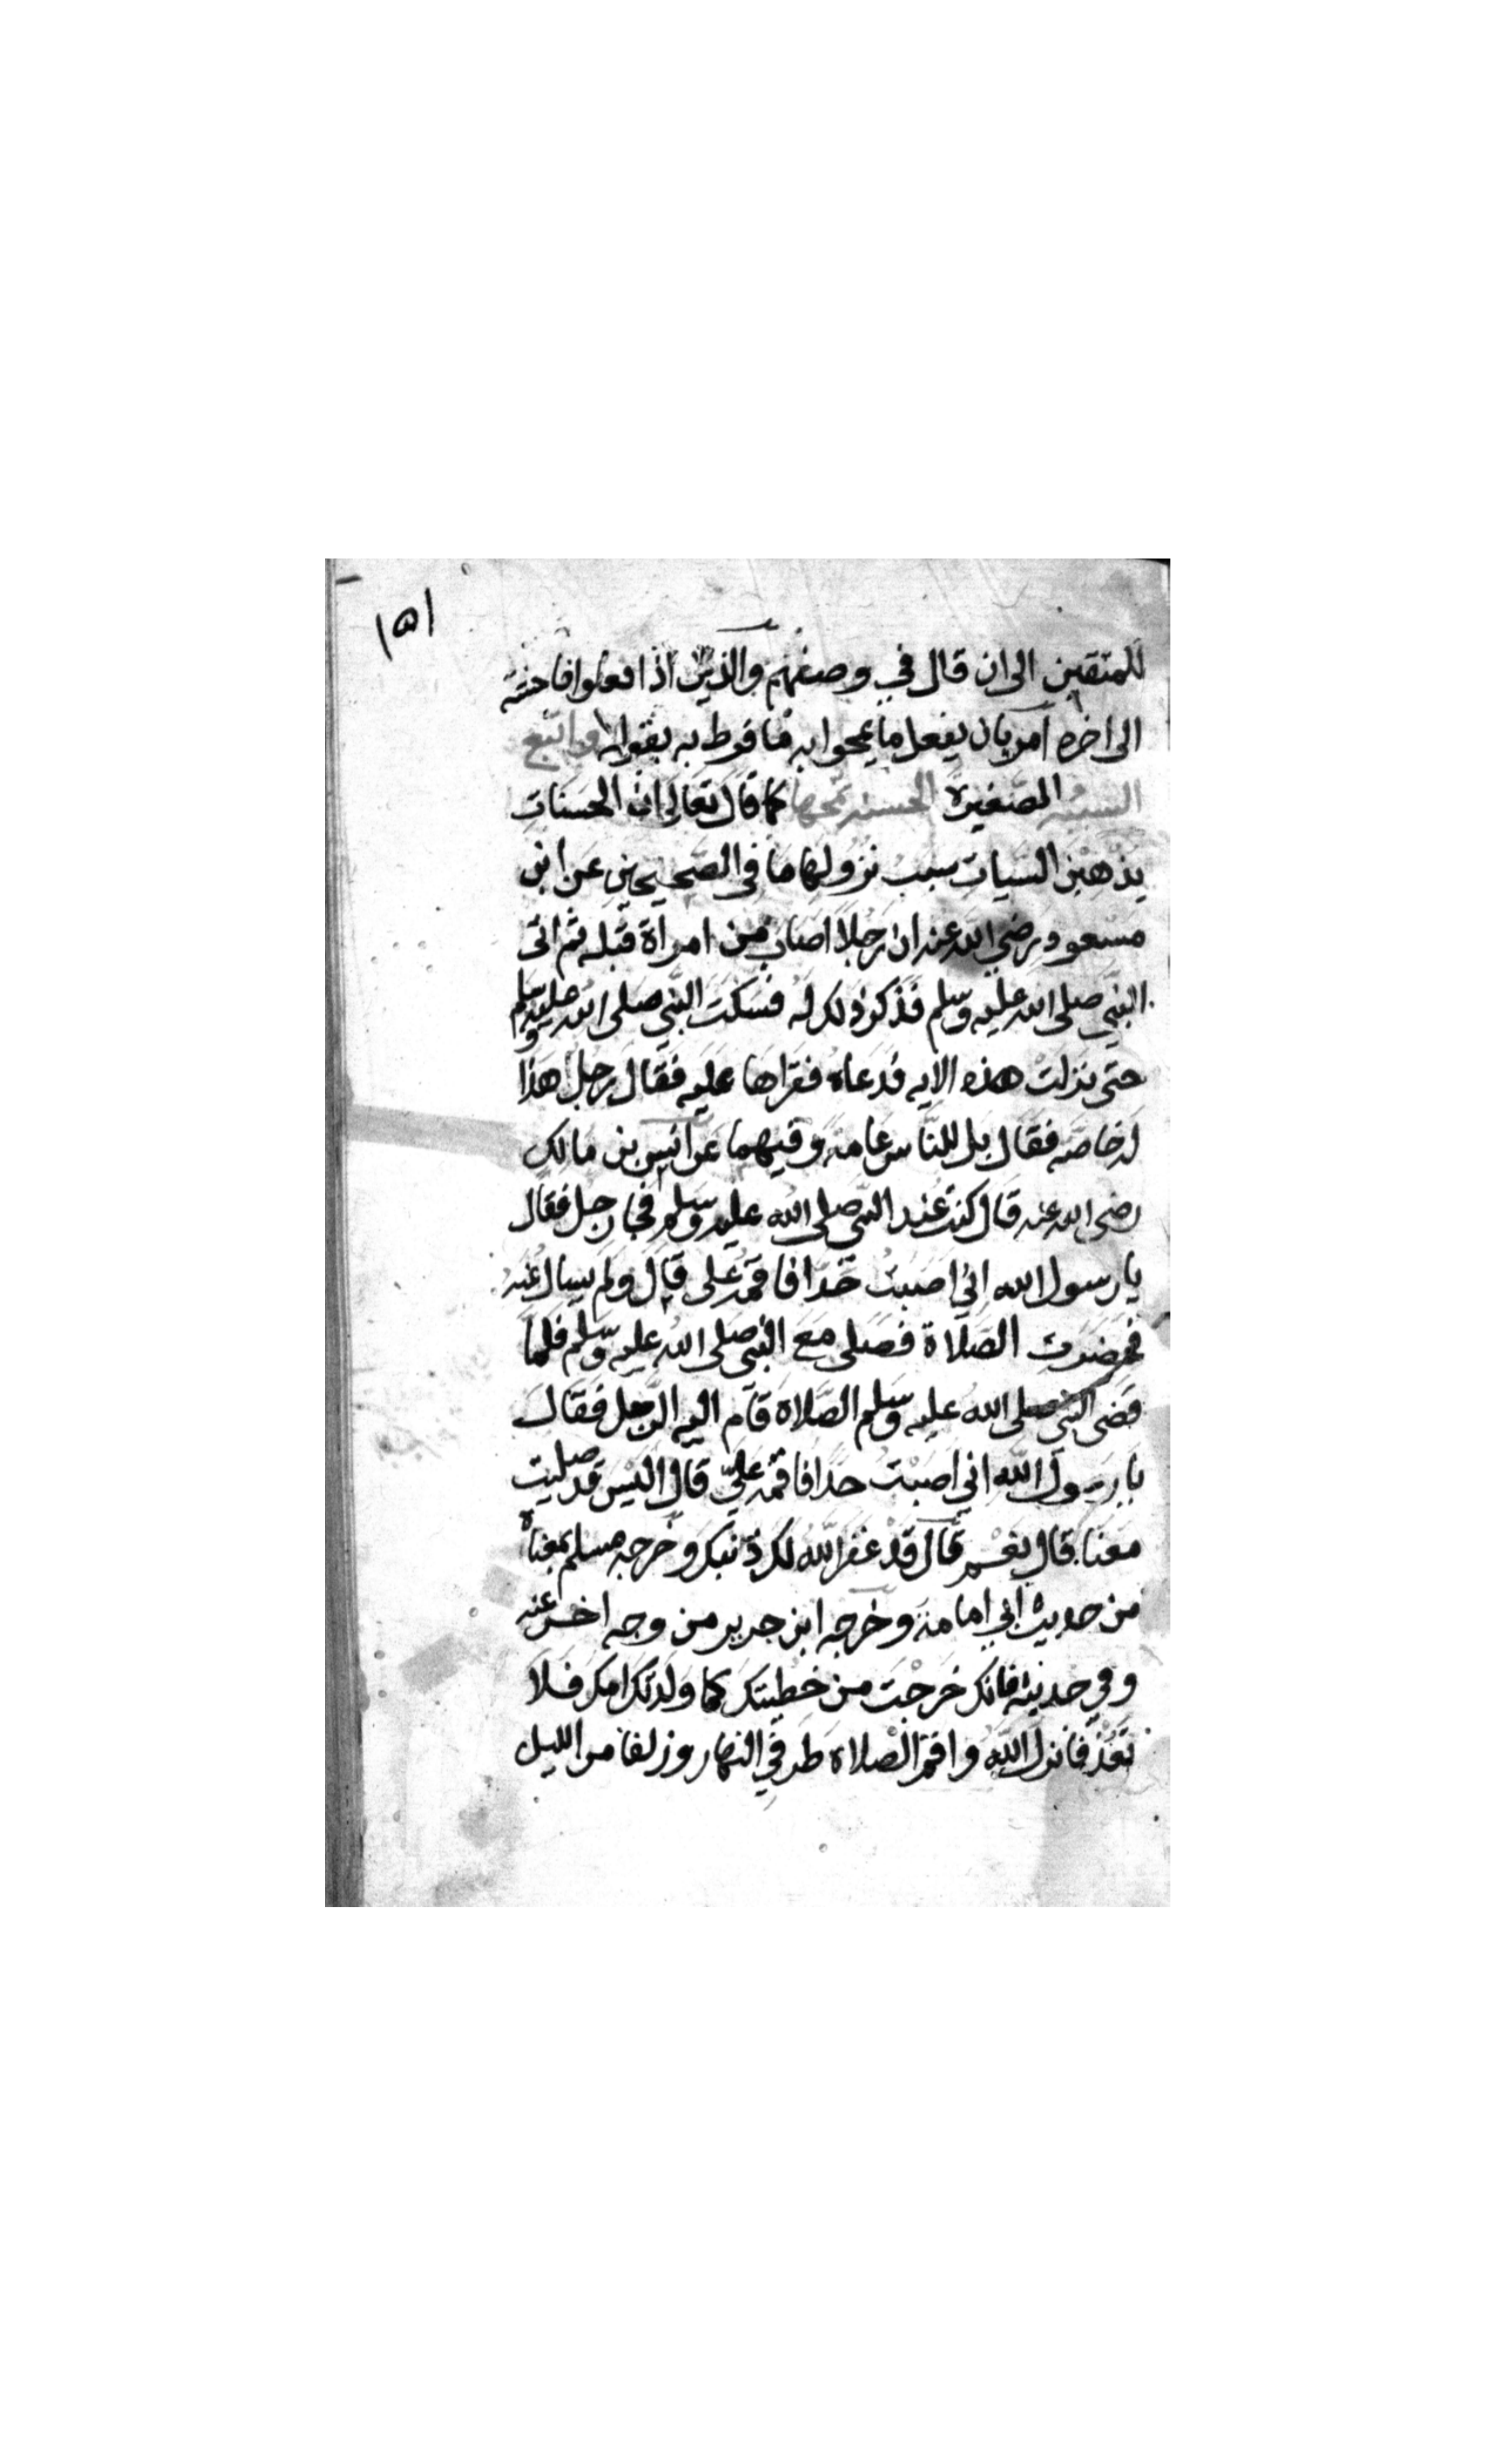 ١٥١
للمتقين الى ان قال في وصفهم والذين اذا فعلوا فاحشة
الى اخره امر بان يفعل ما يمحوا به ما فرط به بقوله واتبع
السيئة الصغيرة الحسنة تمحها كما قال تعالى ان الحسنات
يذهبن السيات سبب نزولها ما في الصحيحين عن ابن
مسعود رضي الله عنه ان رجلا اصاب من امراة قبله ثم اتى
النبي صلى الله عليه وسلم فذكر ذلك له فسكت النبي صلى الله عليه وسلم
حتى نزلت هذه الايه فدعاه فقراها عليه فقال رجل هذا
له خاصه فقال بل للناس عامة وفيهما عن انس بن مالك
رضى الله عنه قال كنت عند النبي صلى الله عليه وسلم فجا رجل فقال
يا رسول الله اني اصبت حدا فاقمه على قال ولم يسال عنه
فحضرت الصلاة فصلى مع النبي صلى الله عليه وسلم فلما
قضى النبي صلى الله عليه وسلم الصلاة قام اليه الرجل فقال
يا رسول الله اني اصبت حدا فاقمه علي قال اليس قد صليت
معنا قال نعم قال قد غفر الله لك ذنبك وخرجه مسلم بمعناه
من حديث ابي امامة وخرجه ابن جرير من وجه اخر عنه
وفي حديثه فانك خرجت من خطيتك كما ولدتك امك فلا
تعد فانزل الله واقم الصلاة طرفي النهار وزلفا من الليل